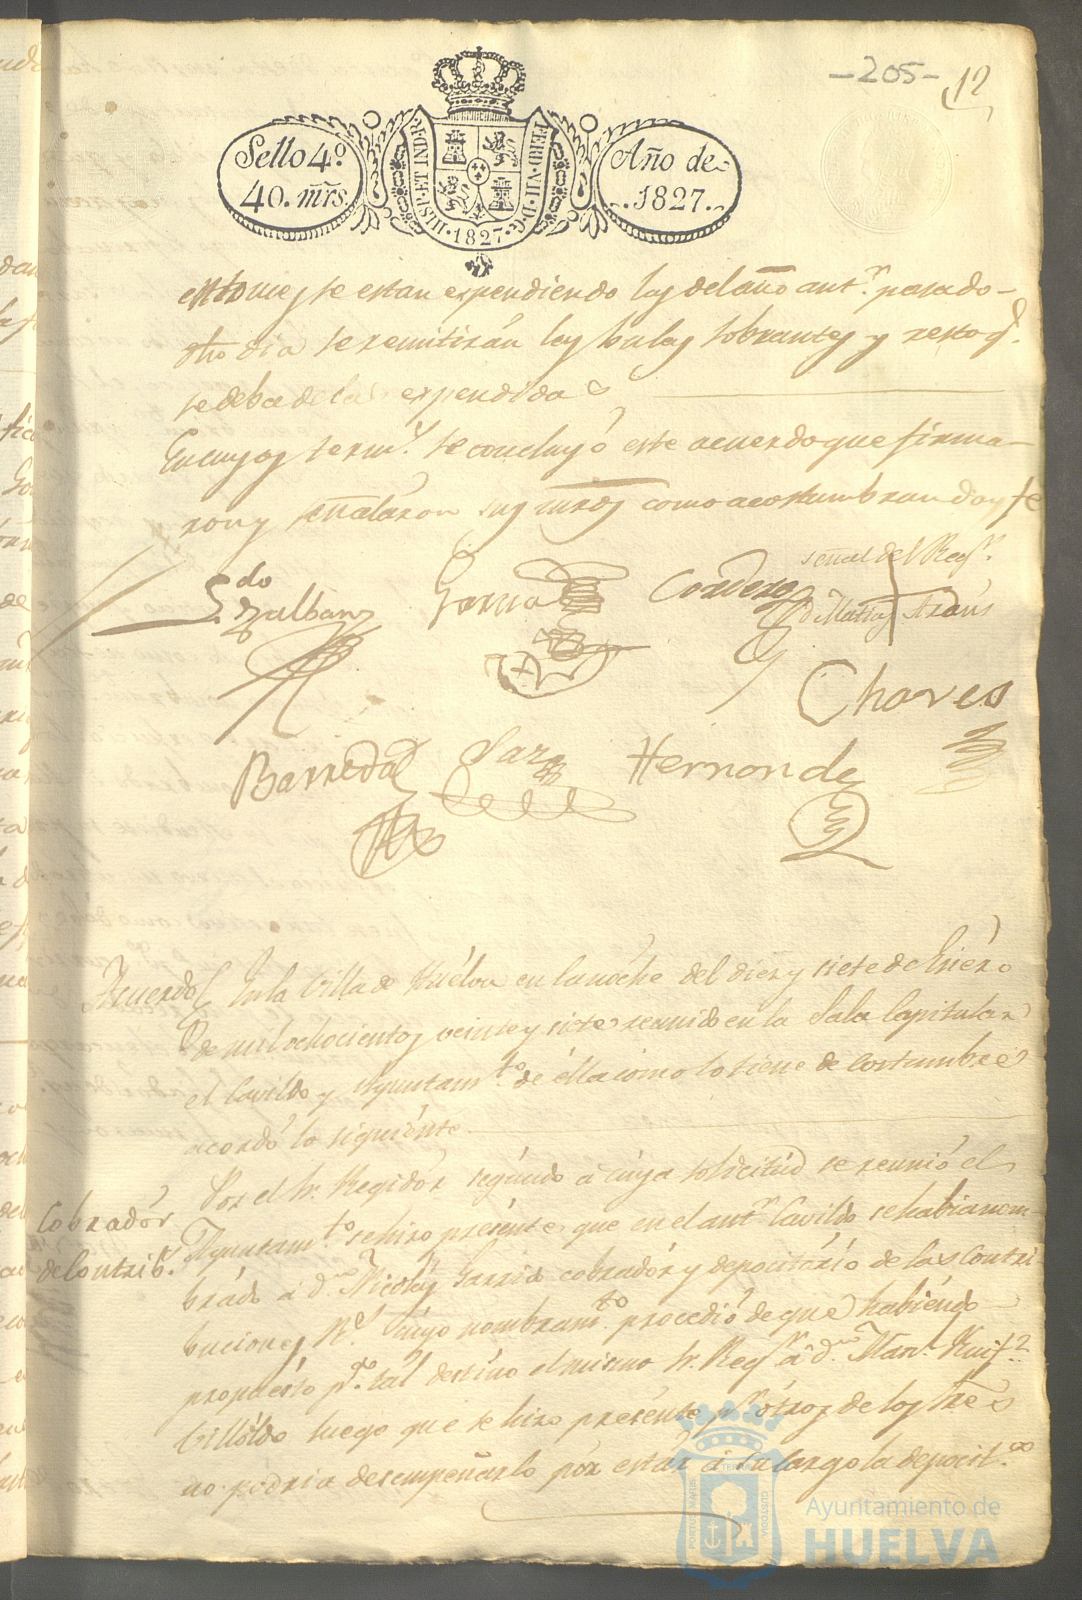 -205- 12
Sello 4º
40. mrs.
HISP. ET IND. R.
FERD. VII. D. G.
1827
Año de
1827.
se estan expendiendo las del año antr. pasado
otro dia se remitirán las bulas sobrantes y resto q.
se deba de las expendidas
En cuyos term.s se concluyó este acuerdo que firma-
ron y señalaron sus mrds como acostumbran doy fe
Ldo
Garcia Cordero señal del Regr.
D. Matias
Chaves
Barreda Saez Hernandez
Acuerdo En la Villa de Huélva en la nóche del diez y siete de Enéro
de mil ochocientos veinte y siete reunido en la Sala Capitular
el Cavildo y Ayuntam.to de élla como lo tiene de costumbre
acordó lo siguiénte
Por el Sr. Regidór segúndo á cúya solicitúd se reunió el
Cobradór Ayuntam.to se hizo presénte que en el antr. Cavildo se habia nom-
de Contrib.s brádo á d.n Nicolás Garrido cobradór y depositário de las Contri-
buciones R.s cúyo nombram.to procedió de que habiéndo
propuésto p.a tal destino el mismo Sr. Regr. á d.n Man.l Ruiz
Villóldo luego que se hizo presénte pr. ótros de los Sres
no podria desempeñarlo pór estár á su cargo la deposit.a
PORTUS MARIS
CUSTODIA
Ayuntamiento de
HUELVA